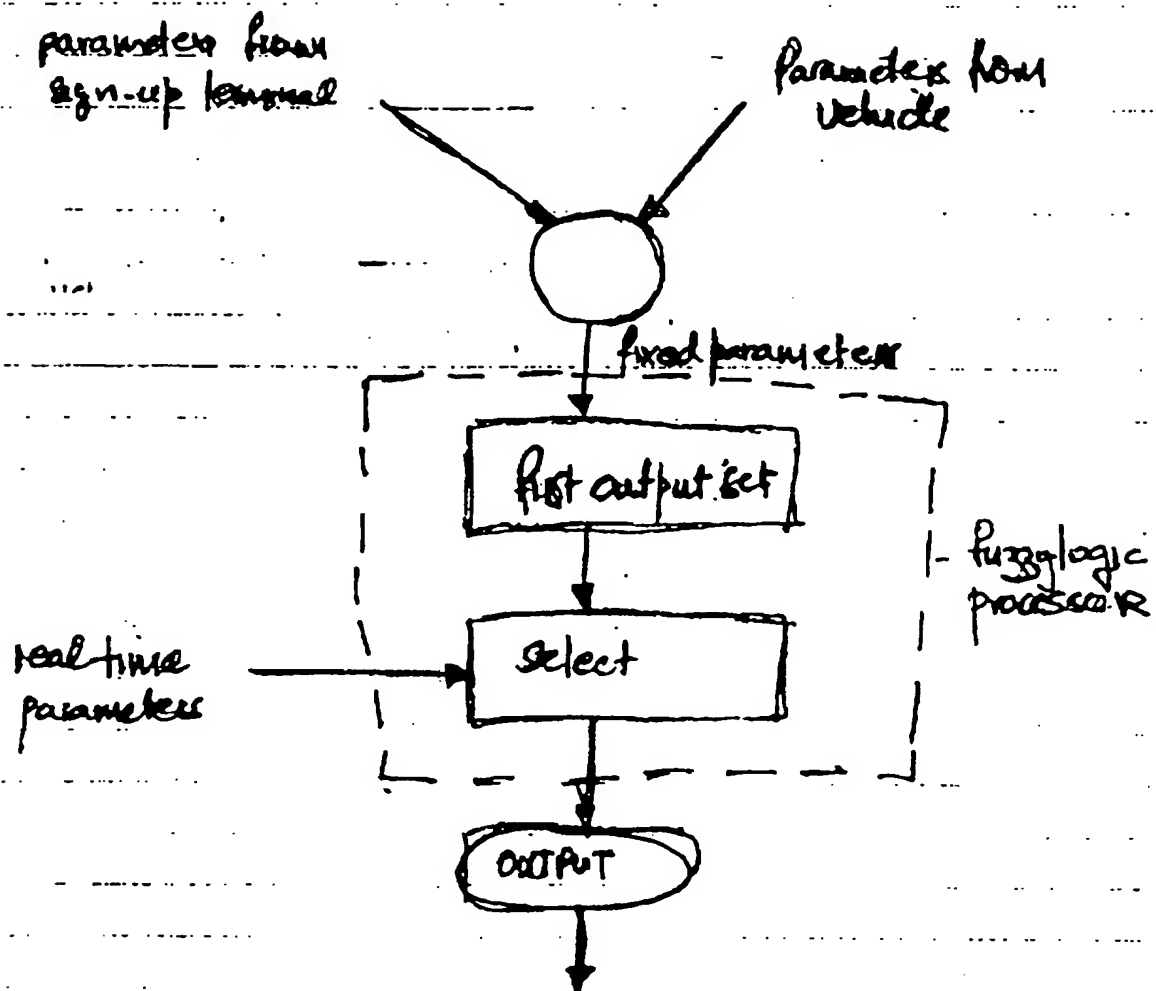 parameters from
sign-up terminal
Parameters from
vehicle
fixed parameters
first output set
fuzzy logic
processor
select
real-time
parameters
OUTPUT